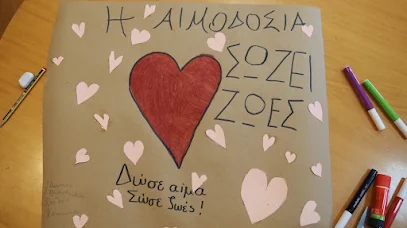 Η ΑΙΜΟΔΟΣΙΑ
ΣΩΖΕΙ
ΖΩΕΣ
Δώσε αίμα
Σώσε ζωές!